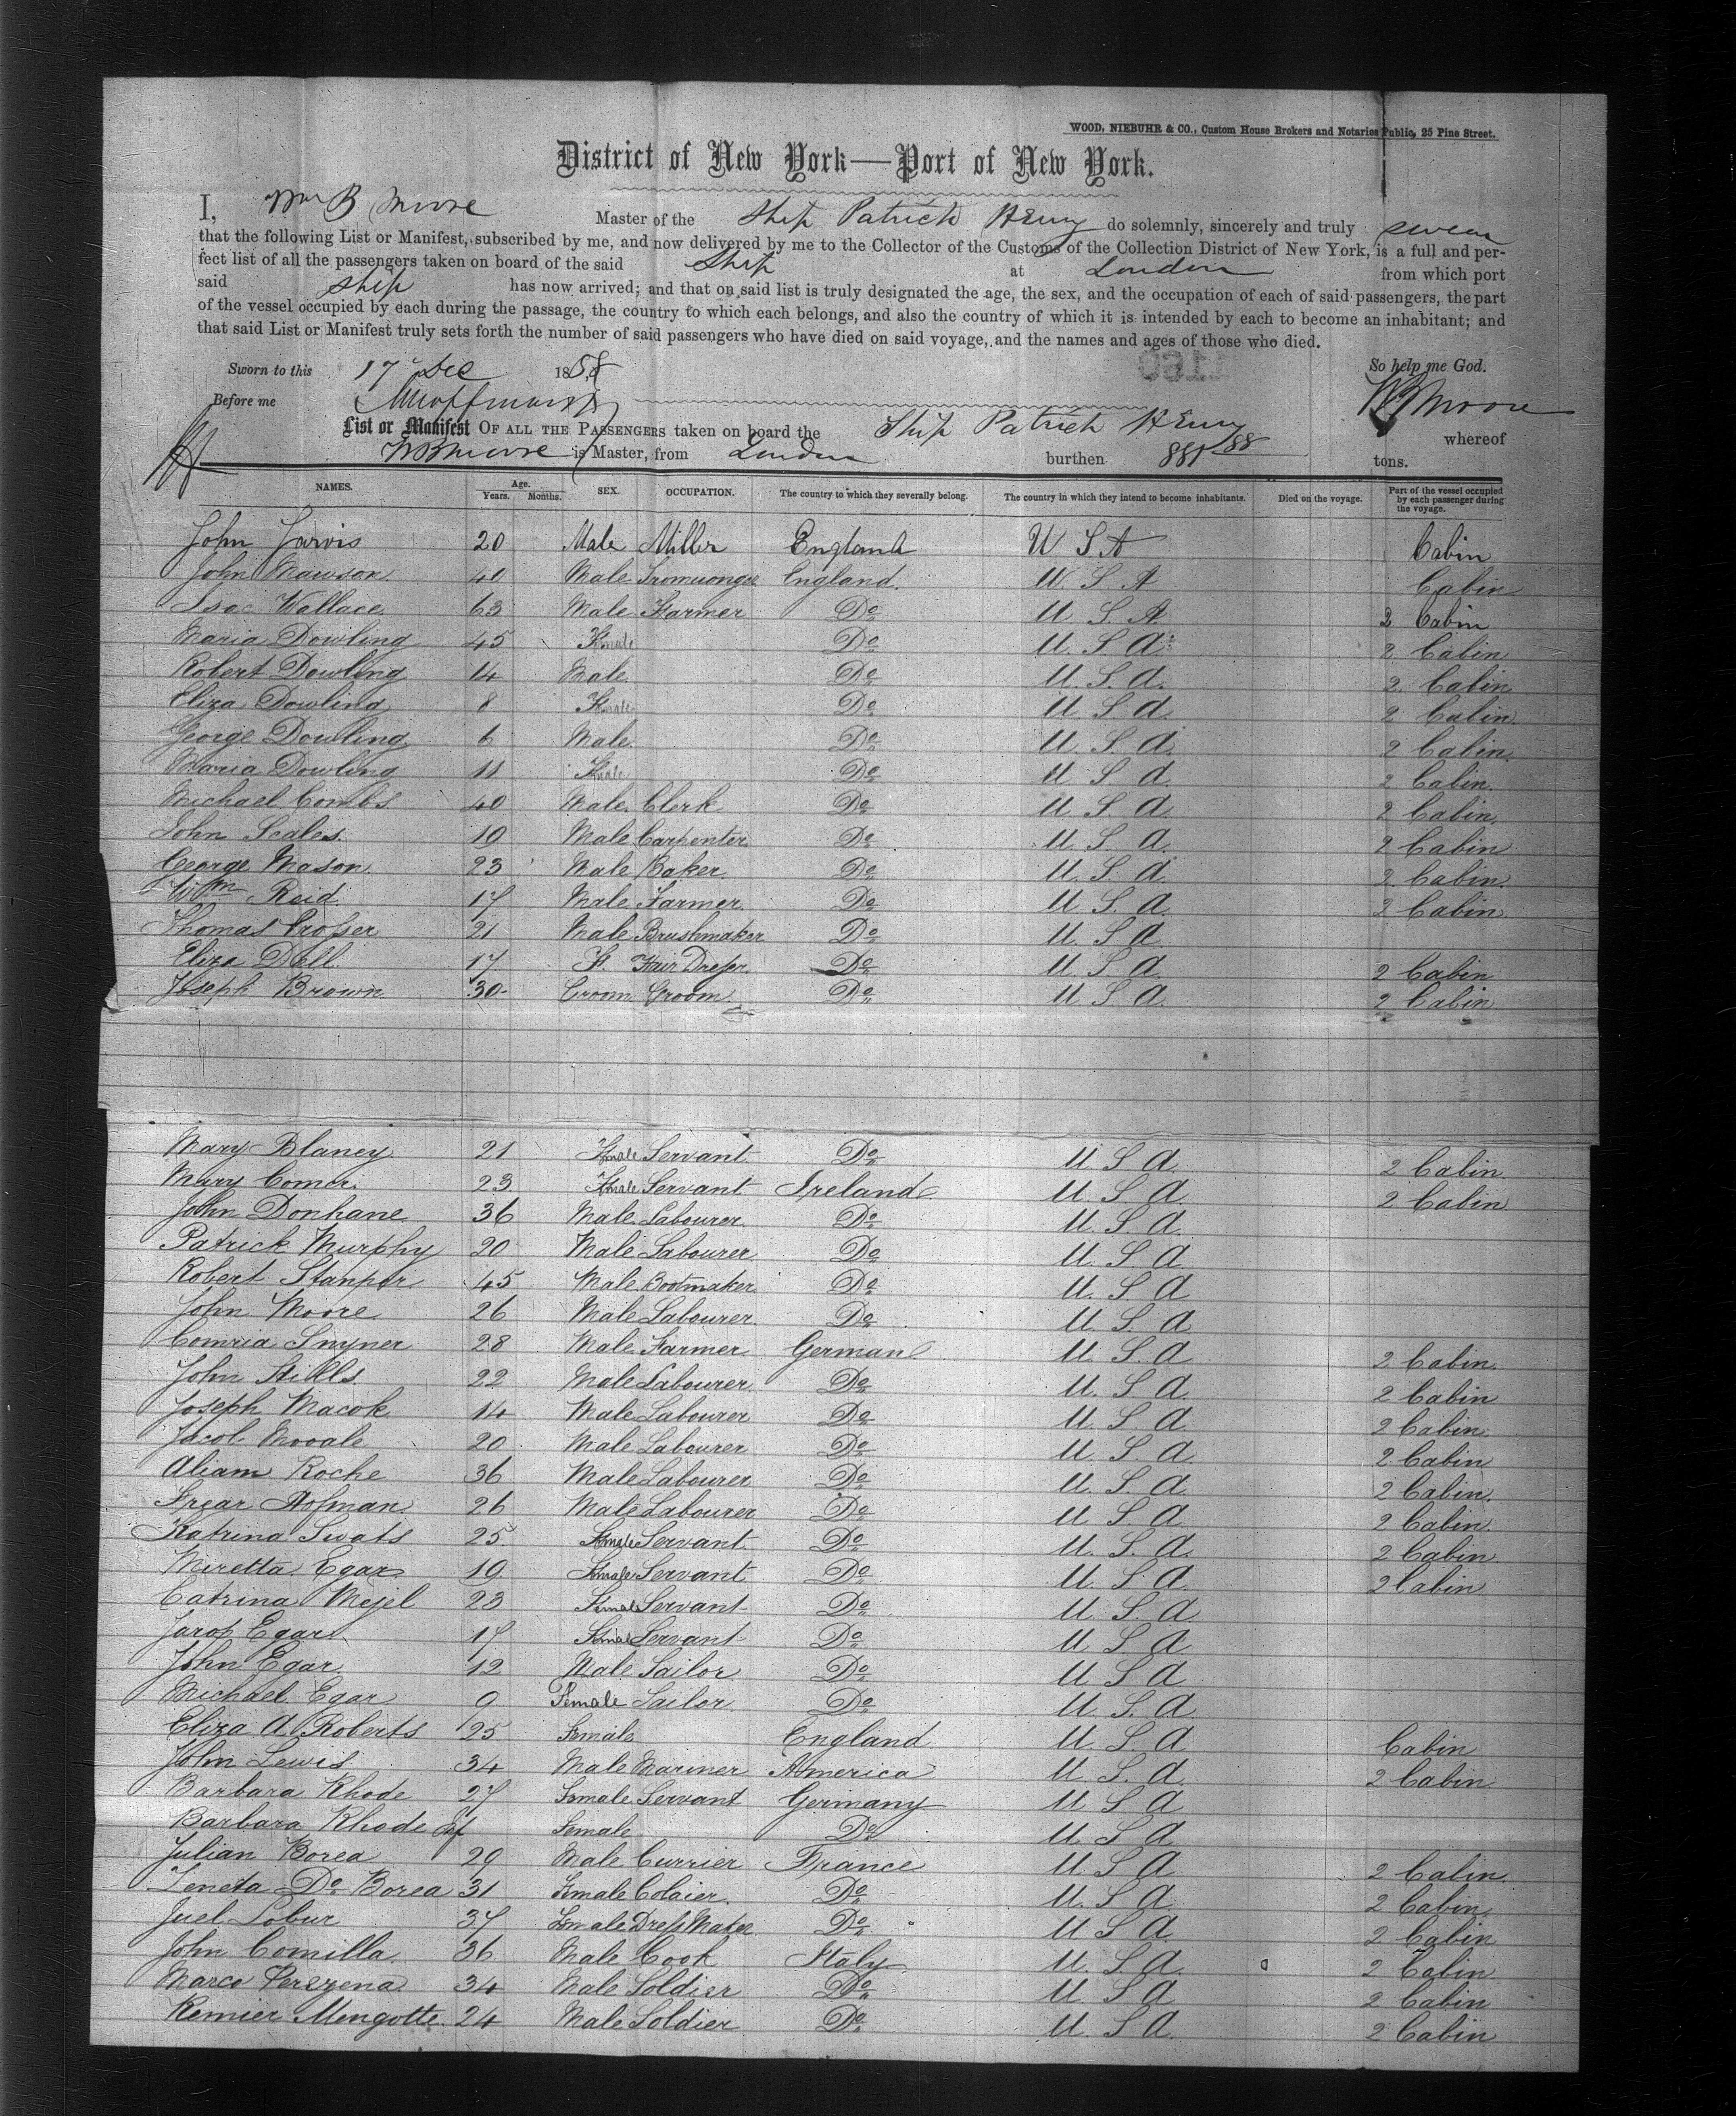 WOOD, NIEBUHR & CO., Custom House Brokers and Notaries Public, 25 Pine Street.
District of New York—Port of New York.
I, Wm B Moore Master of the Ship Patrick Henry do solemnly, sincerely and truly swear
that the following List or Manifest, subscribed by me, and now delivered by me to the Collector of the Customs of the Collection District of New York, is a full and per-
fect list of all the passengers taken on board of the said Ship at London from which port
said ship has now arrived; and that on said list is truly designated the age, the sex, and the occupation of each of said passengers, the part
of the vessel occupied by each during the passage, the country to which each belongs, and also the country of which it is intended by each to become an inhabitant; and
that said List or Manifest truly sets forth the number of said passengers who have died on said voyage, and the names and ages of those who died.
Sworn to this 17 Dec 1858 So help me God.
Before me WBMoore
List or Manifest OF ALL THE PASSENGERS taken on board the Ship Patrick Henry whereof
WBMoore is Master, from London burthen 881 88 tons.
NAMES. Age. Years. Months. SEX. OCCUPATION. The country to which they severally belong. The country in which they intend to become inhabitants. Died on the voyage. Part of the vessel occupied by each passenger during the voyage.
John Jarvis 20 Male Miller England U S A Cabin
John Mawson 40 Male Iromuonger England. U S A Cabin
Isac Wallace 63 Male Farmer Do U. S. A 2 Cabin
Maria Dowling 45 Female Do U S A 2 Cabin
Robert Dowling 14 Male Do U. S. A. 2 Cabin
Eliza Dowling 8 Female Do U S A 2 Cabin
George Dowling 6 Male Do U S A. 2 Cabin
Maria Dowling 11 Female Do U S A 2 Cabin
Michael Combs 40 Male Clerk Do U S A 2 Cabin
John Scales 19 Male Carpenter Do U. S. A. 2 Cabin
George Mason 23 Male Baker Do U. S. A 2 Cabin
Wm Reid 17 Male Farmer Do U. S. A. 2 Cabin
Thomas Prosser 21 Male Brushmaker Do U. S A
Eliza Dall 17 F. Hair Dresser Do U S A. 2 Cabin
Joseph Brown 30 Groom Groom Do U S A 2 Cabin
Mary Blaney 21 Female Servant Do U. S A. 2 Cabin
Mary Comer 23 Female Servant Ireland U. S A 2 Cabin
John Donhane 36 Male Labourer Do U. S A
Patrick Murphy 20 Male Labourer Do U S A
Robert Stanper 45 Male Bootmaker Do U. S A
John Moore 26 Male Labourer Do U. S. A
Comria Snyner 28 Male Farmer German U. S. A 2 Cabin
John Stills 22 Male Labourer Do U. S A 2 Cabin
Joseph Macok 14 Male Labourer Do U. S A 2 Cabin
Jacob Mooale 20 Male Labourer Do U. S A 2 Cabin
Aliam Roche 36 Male Labourer Do U S A 2 Cabin
Frear Hofman 26 Male Labourer Do U S A 2 Cabin
Katrina Swats 25 Female Servant Do U. S. A. 2 Cabin
Miretta Egar 19 Female Servant Do U. S A 2 Cabin
Catrina Mejel 23 Female Servant Do U. S. A
Jarob Egar 17 Female Servant Do U S A
John Egar 12 Male Sailor Do U S A
Michael Egar 9 Female Sailor Do U. S. A
Eliza A Roberts 25 Female England U S A Cabin
John Lewis 34 Male Mariner America U. S. A. 2 Cabin
Barbara Rhode 27 Female Servant Germany U S A
Barbara Rhode Inf Female Do U S A
Julian Borea 29 Male Currier France U S A 2 Cabin
Teneta Do Borea 31 Female Colaier Do U S A 2 Cabin
Juel Lobur 37 Female Dress Maker Do U S A 2 Cabin
John Comilla 36 Male Cook Italy U. S A. 2 Cabin
Marco Perezena 34 Male Soldier Do U S A 2 Cabin
Remier Mengotte 24 Male Soldier Do U. S A 2 Cabin